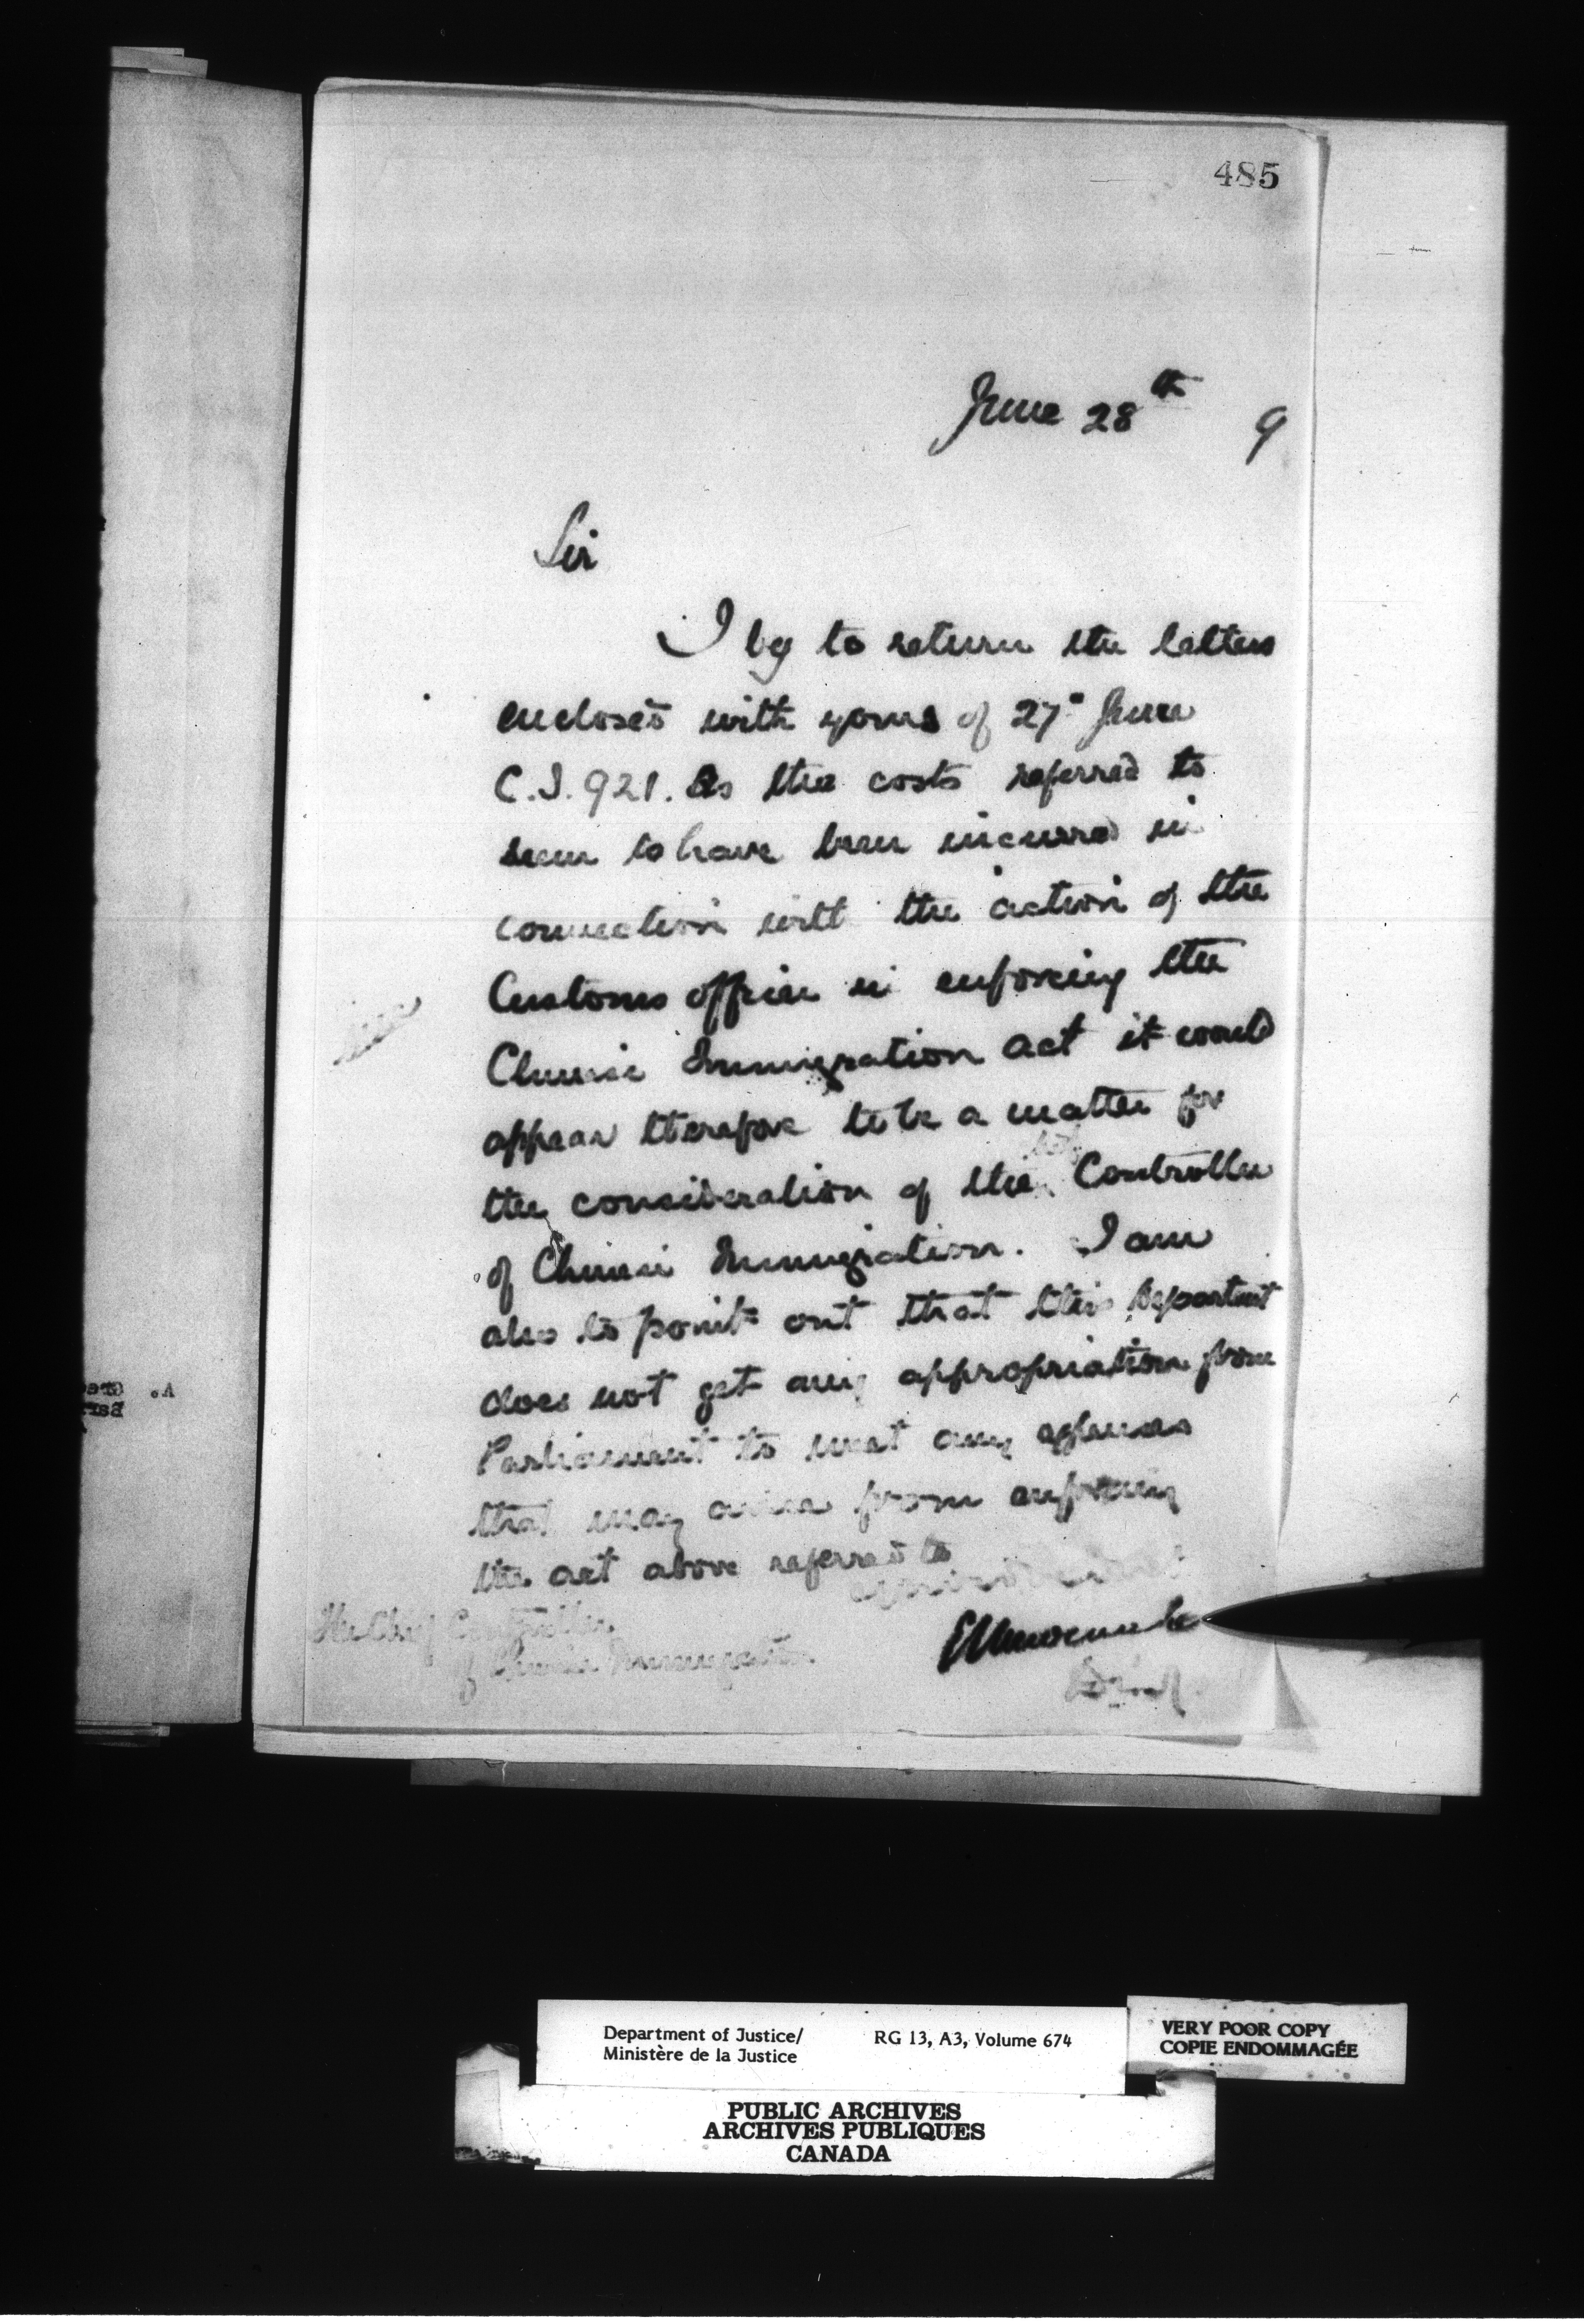 485
June 28th 9
Sir
I beg to return the letters
enclosed with yours of 27" June
C.I. 921. As the costs referred to
seem to have been incurred in
connection with the action of the
Customs officer in enforcing the
Chinese Immigration Act it would
appear therefore to be a matter for
the consideration of the Controller
of Chinese Immigration. I am
also to point out that this Department
does not get any appropriation from
Parliament to meet any expenses
that may arise from enforcing
the act above referred to
The Chief Controller
of Chinese Immigration
Department of Justice/
Ministère de la Justice
RG 13, A3, Volume 674
VERY POOR COPY
COPIE ENDOMMAGÉE
PUBLIC ARCHIVES
ARCHIVES PUBLIQUES
CANADA